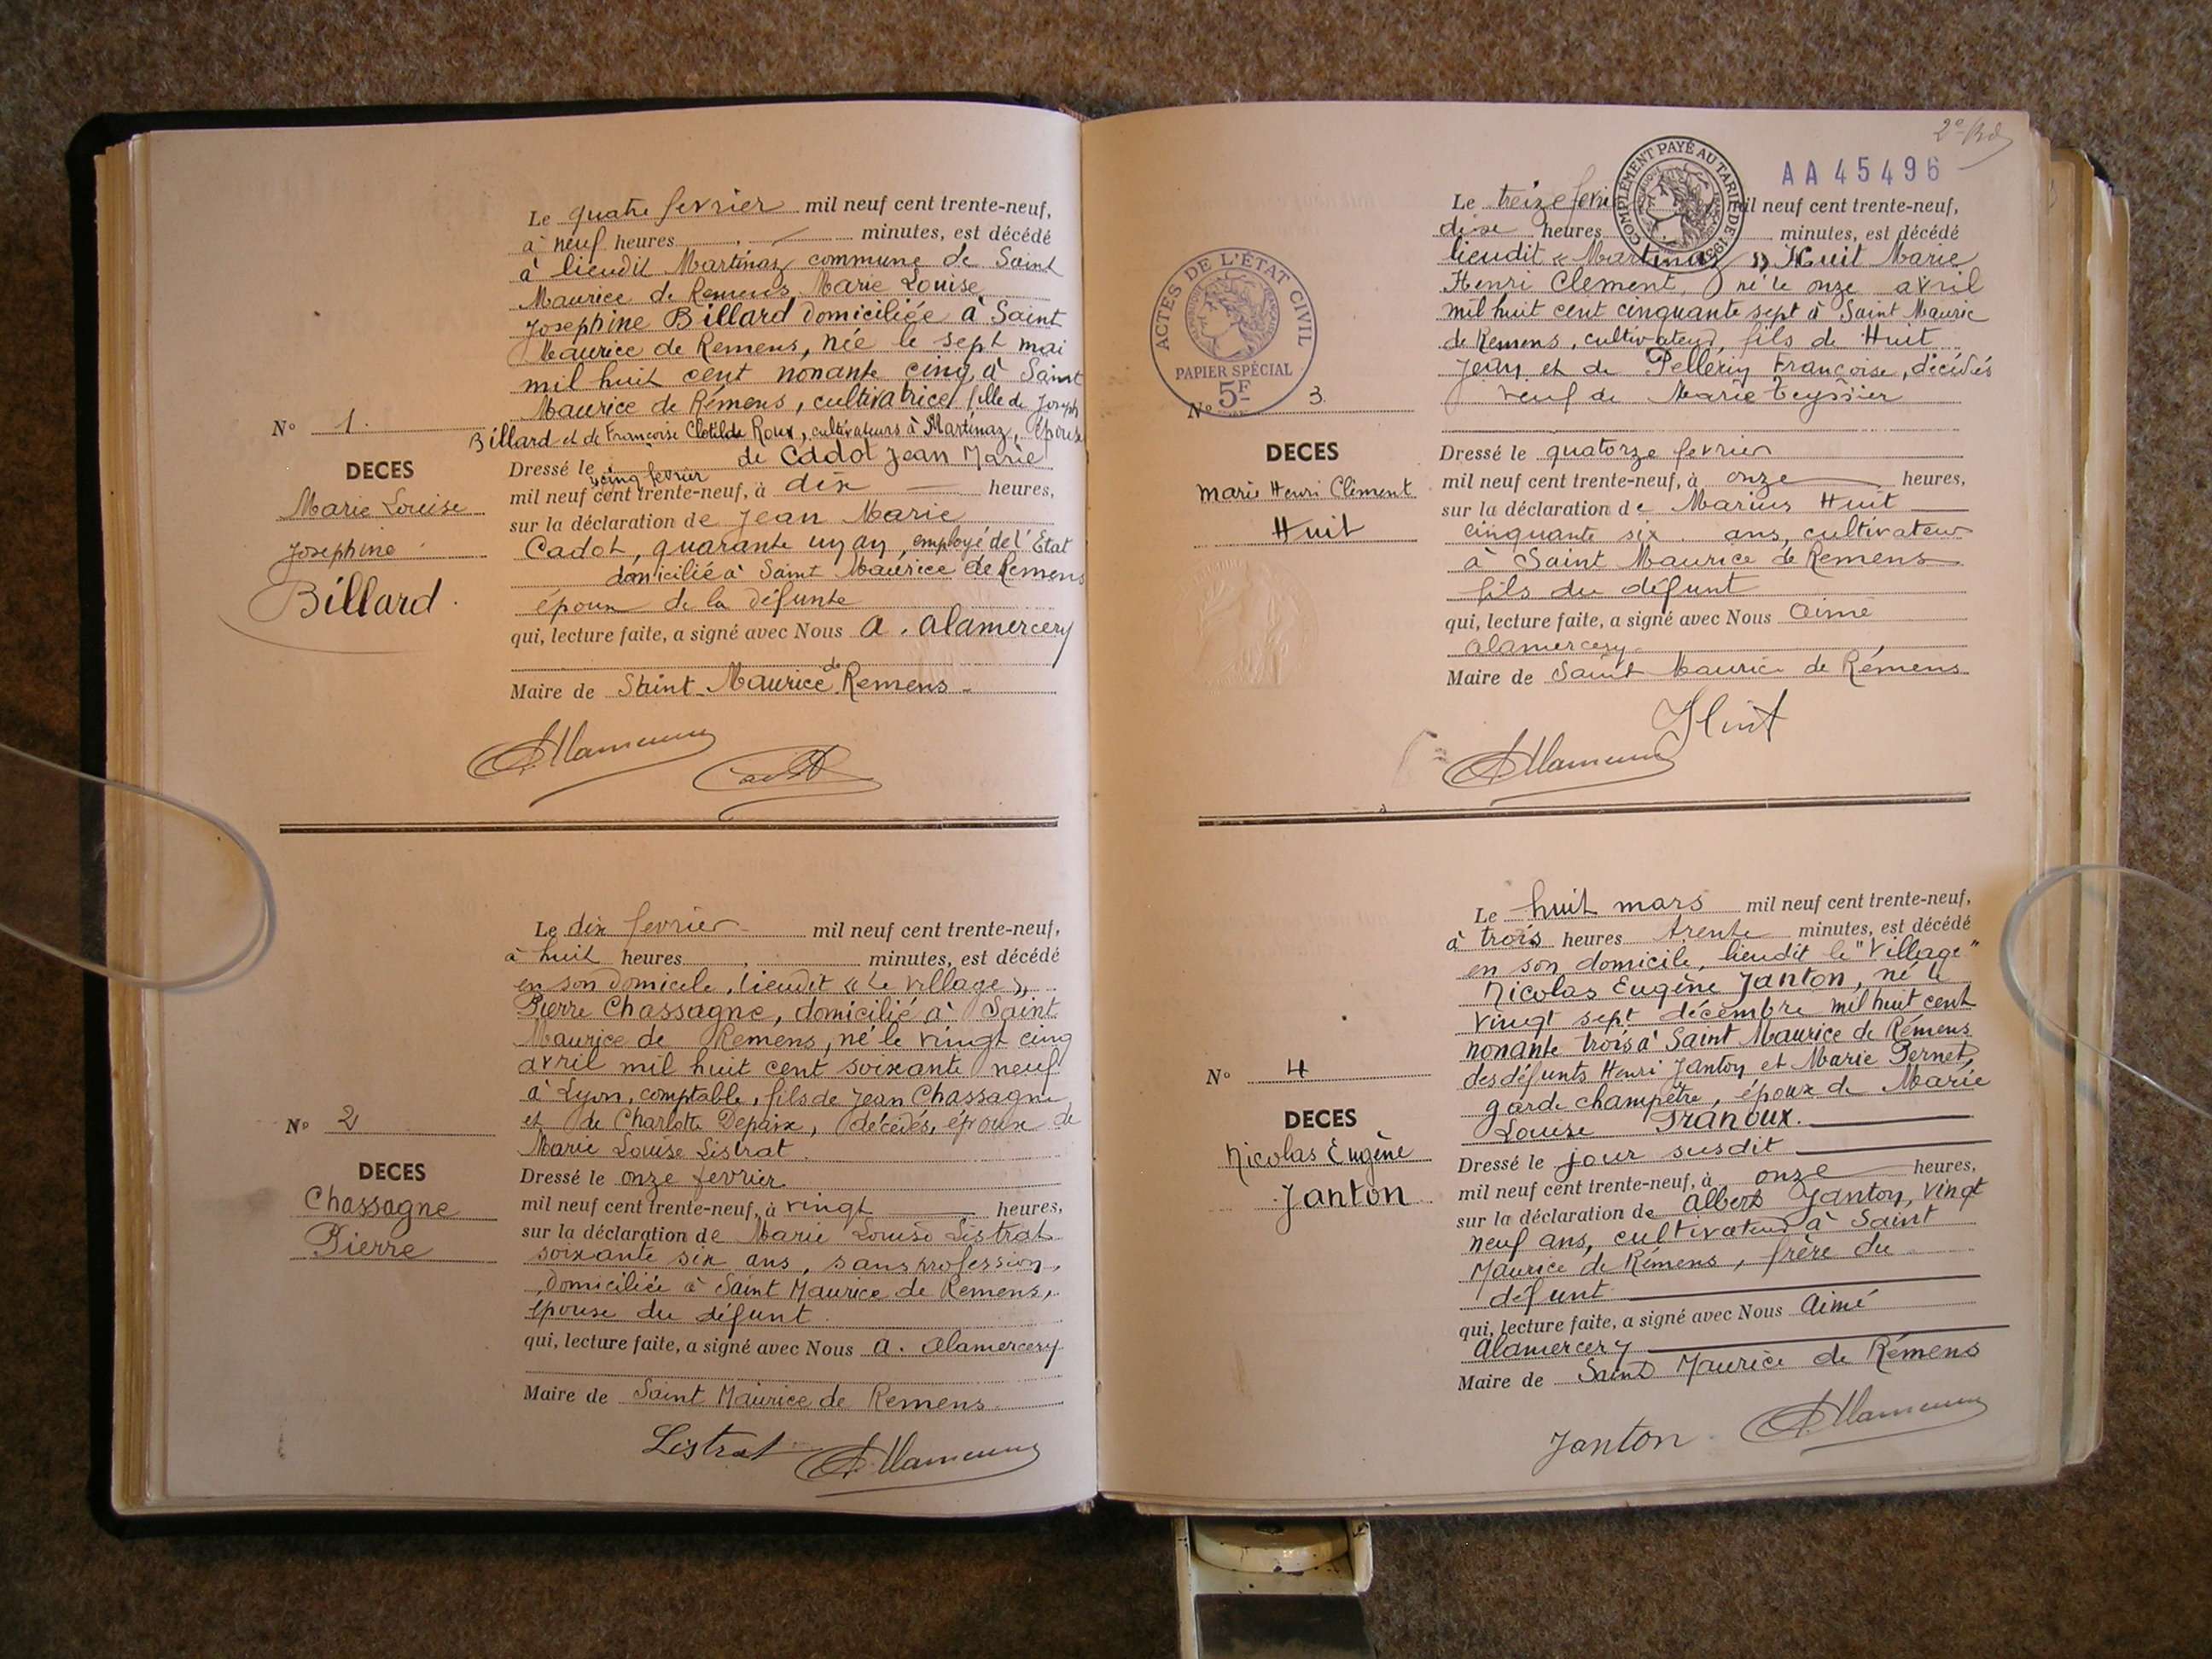 Le quatre fevrier mil neuf cent trente-neuf,
à neuf heures minutes, est décédé
à lieudit Martinaz commune de Saint
Maurice de Remens, Marie Louise
Josephine Billard domiciliée à Saint
Maurice de Remens, née le sept mai
mil huit cent nonante cinq à Saint
Maurice de Rémens, cultivatrice, fille de Joseph
Billard et de Francoise Clotilde Roux, cultivateurs à Martinaz, Épouse
de Cadot Jean Marie
Dressé le cinq fevrier
mil neuf cent trente-neuf, à dix heures,
sur la déclaration de Jean Marie
Cadot, quarante un an, employé de l'Etat
domicilié à Saint Maurice de Remens
époux de la défunte
qui, lecture faite, a signé avec Nous A. Alamercery
Maire de Saint-Maurice de Remens
N° 1.
DECES
Marie Louise
Josephine
Billard.
Le dix fevrier mil neuf cent trente-neuf,
à huit heures minutes, est décédé
en son domicile, lieudit « Le Village »,
Pierre Chassagne, domicilié à Saint
Maurice de Remens, né le vingt cinq
avril mil huit cent soixante neuf
à Lyon, comptable, fils de Jean Chassagne
et de Charlotte Depaix, décédés, époux de
Marie Louise Listrat.
Dressé le onze fevrier
mil neuf cent trente-neuf, à vingt heures,
sur la déclaration de Marie Louise Listrat
soixante six ans, sans profession,
domiciliée à Saint Maurice de Remens,
épouse du défunt
qui, lecture faite, a signé avec Nous A. Alamercery
Maire de Saint Maurice de Remens
Listrat
N° 2
DECES
Chassagne
Pierre
2e
AA45496
COMPLÉMENT PAYÉ AU TARIF DE
Le treize fevri mil neuf cent trente-neuf,
heures minutes, est décédé
lieudit « Martinaz » Huit Marie
Henri Clement, né le onze avril
mil huit cent cinquante sept à Saint Mauric
de Remens, cultivateur, fils de Huit
Jean et de Pellerin Françoise, décédés
veuf de Marie Teyssier
Dressé le quatorze fevrier
mil neuf cent trente-neuf, à onze heures,
sur la déclaration de Marius Huit
cinquante six ans, cultivateur
à Saint Maurice de Remens
fils du défunt
qui, lecture faite, a signé avec Nous Aimé
Alamercery
Maire de Saint Maurice de Rémens
Huit
ACTES DE L'ÉTAT CIVIL
PAPIER SPÉCIAL
5F
N° 3.
DECES
Marie Henri Clément
Huit
Le huit mars mil neuf cent trente-neuf,
à trois heures trente minutes, est décédé
en son domicile, lieudit le "Village"
Nicolas Eugène Janton, né le
vingt sept décembre mil huit cent
nonante trois à Saint Maurice de Rémens
des défunts Henri Janton et Marie Pernet,
garde champêtre, époux de Marie
Louise Tranoux.
Dressé le jour susdit
mil neuf cent trente-neuf, à onze heures,
sur la déclaration de Albert Janton, vingt
neuf ans, cultivateur à Saint
Maurice de Rémens, frère du
défunt
qui, lecture faite, a signé avec Nous Aimé
Alamercery
Maire de Saint Maurice de Rémens
Janton
N° 4
DECES
Nicolas Eugène
Janton